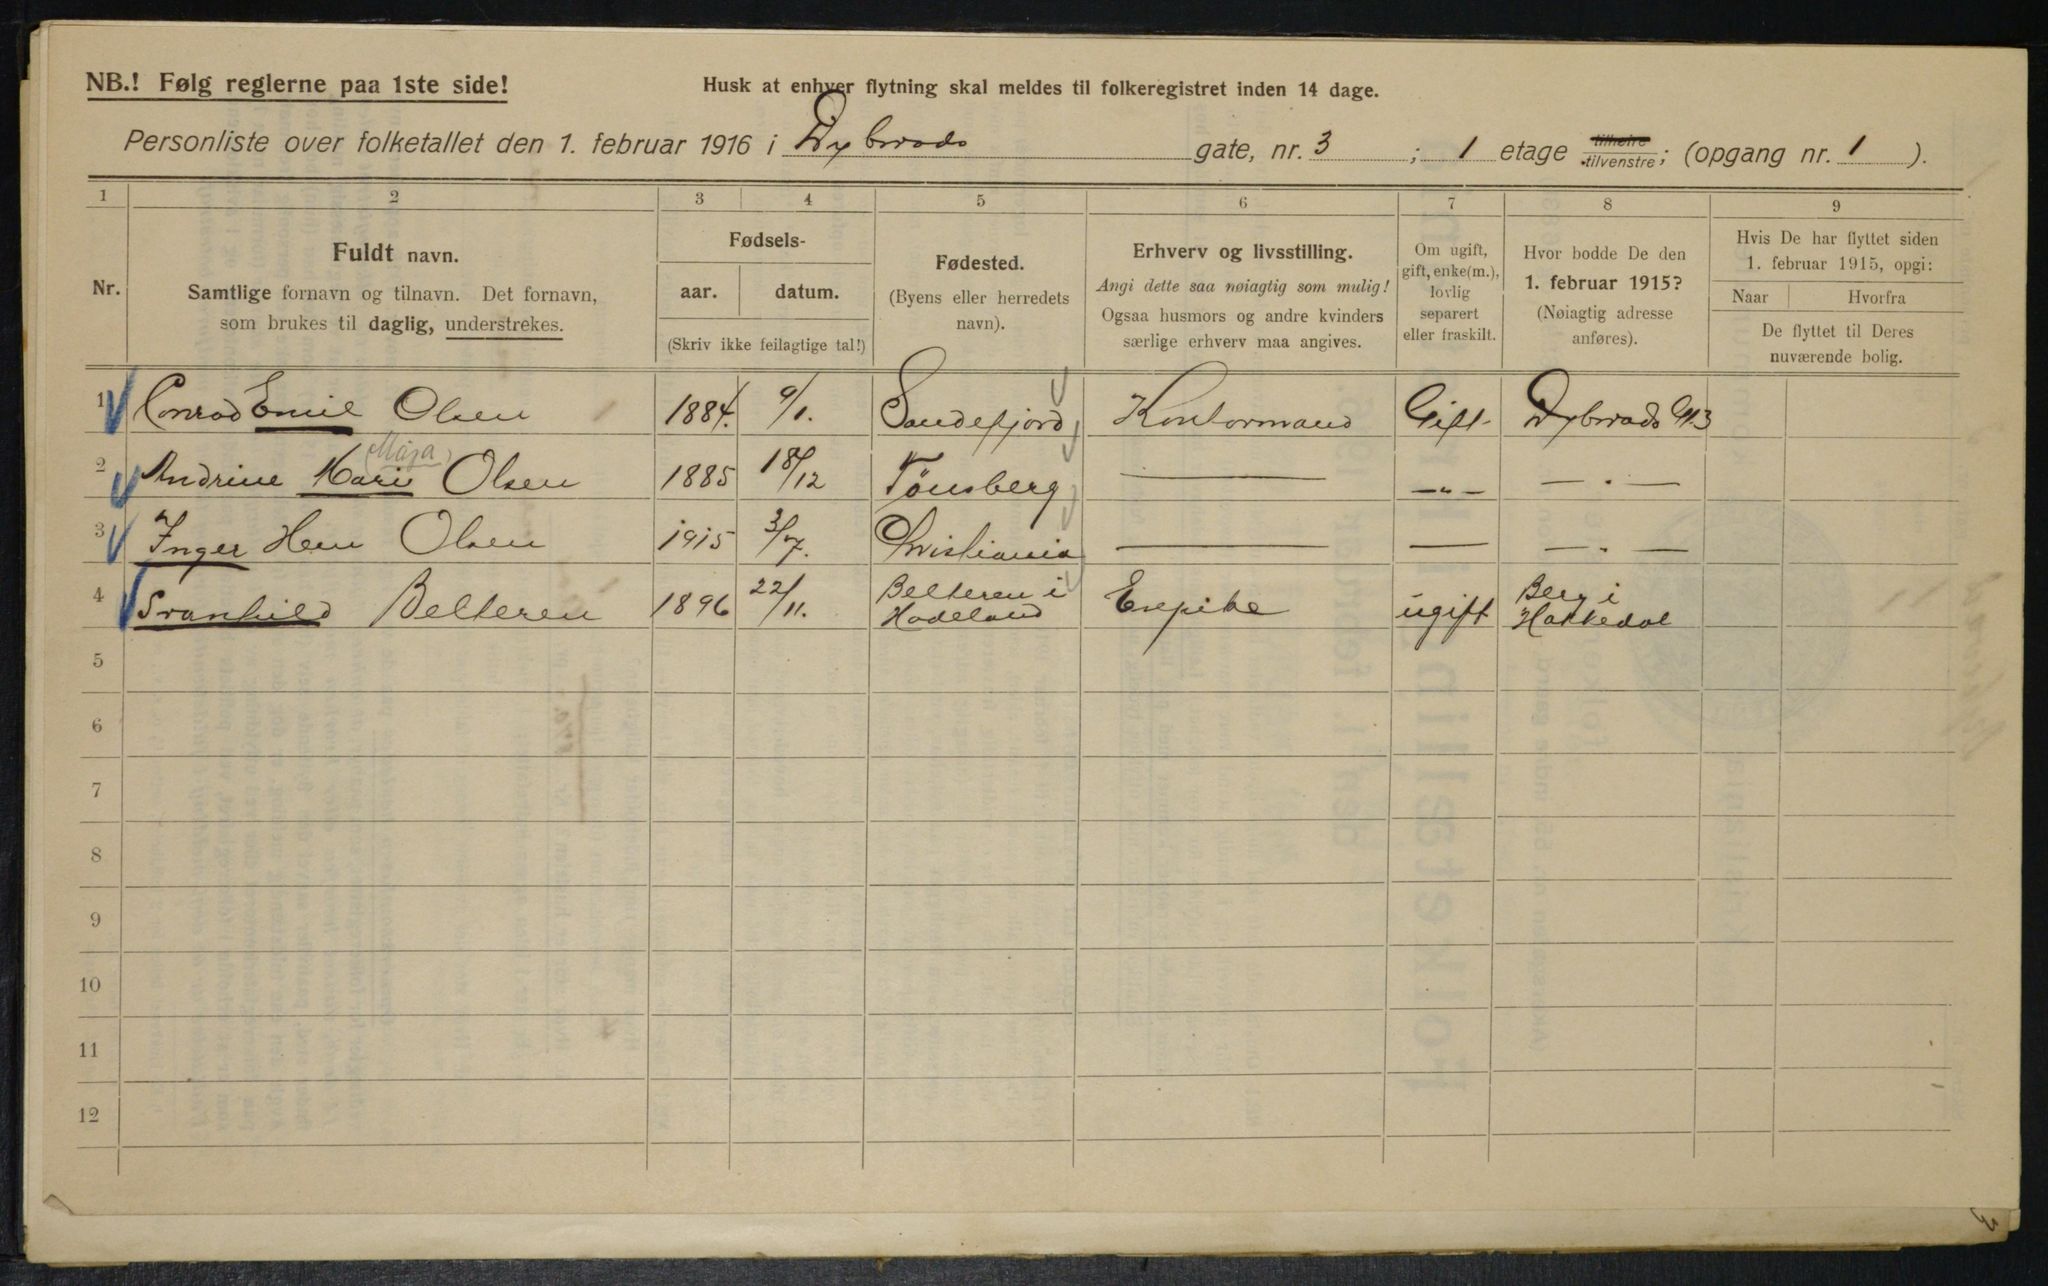 NB.! Følg reglerne paa 1ste side!
Husk at enhver flytning skal meldes til folkeregistret inden 14 dage.
Personliste over folketallet den 1. februar 1916 i Dybwads gate, nr. 3 ; 1 etage tilhøire tilvenstre; (opgang nr. 1 ).
1 2 3 4 5 6 7 8 9
Nr.
Fuldt navn.
Samtlige fornavn og tilnavn. Det fornavn,
som brukes til daglig, understrekes.
Fødsels-
aar. datum.
(Skriv ikke feilagtige tal!)
Fødested.
(Byens eller herredets
navn).
Erhverv og livsstilling.
Angi dette saa nøiagtig som mulig!
Ogsaa husmors og andre kvinders
særlige erhverv maa angives.
Om ugift,
gift, enke(m.),
lovlig
separert
eller fraskilt.
Hvor bodde De den
1. februar 1915?
(Nøiagtig adresse
anføres).
Hvis De har flyttet siden
1. februar 1915, opgi:
Naar Hvorfra
De flyttet til Deres
nuværende bolig.
1 Conrad Emil Olsen 1884. 9/1. Sandefjord Kontormand Gift Dybwads Gt 3
(Maja)
2 Andrine Marie Olsen 1885 18/12 Tønsberg — —„— — . —
3 Inger Olsen 1915 3/7. Christiania — — — . —
4 Svanhild Belteren 1896 22/11. Belteren i Hadeland Enepike ugift Berg i Hakkedal
5
6
7
8
9
10
11
12